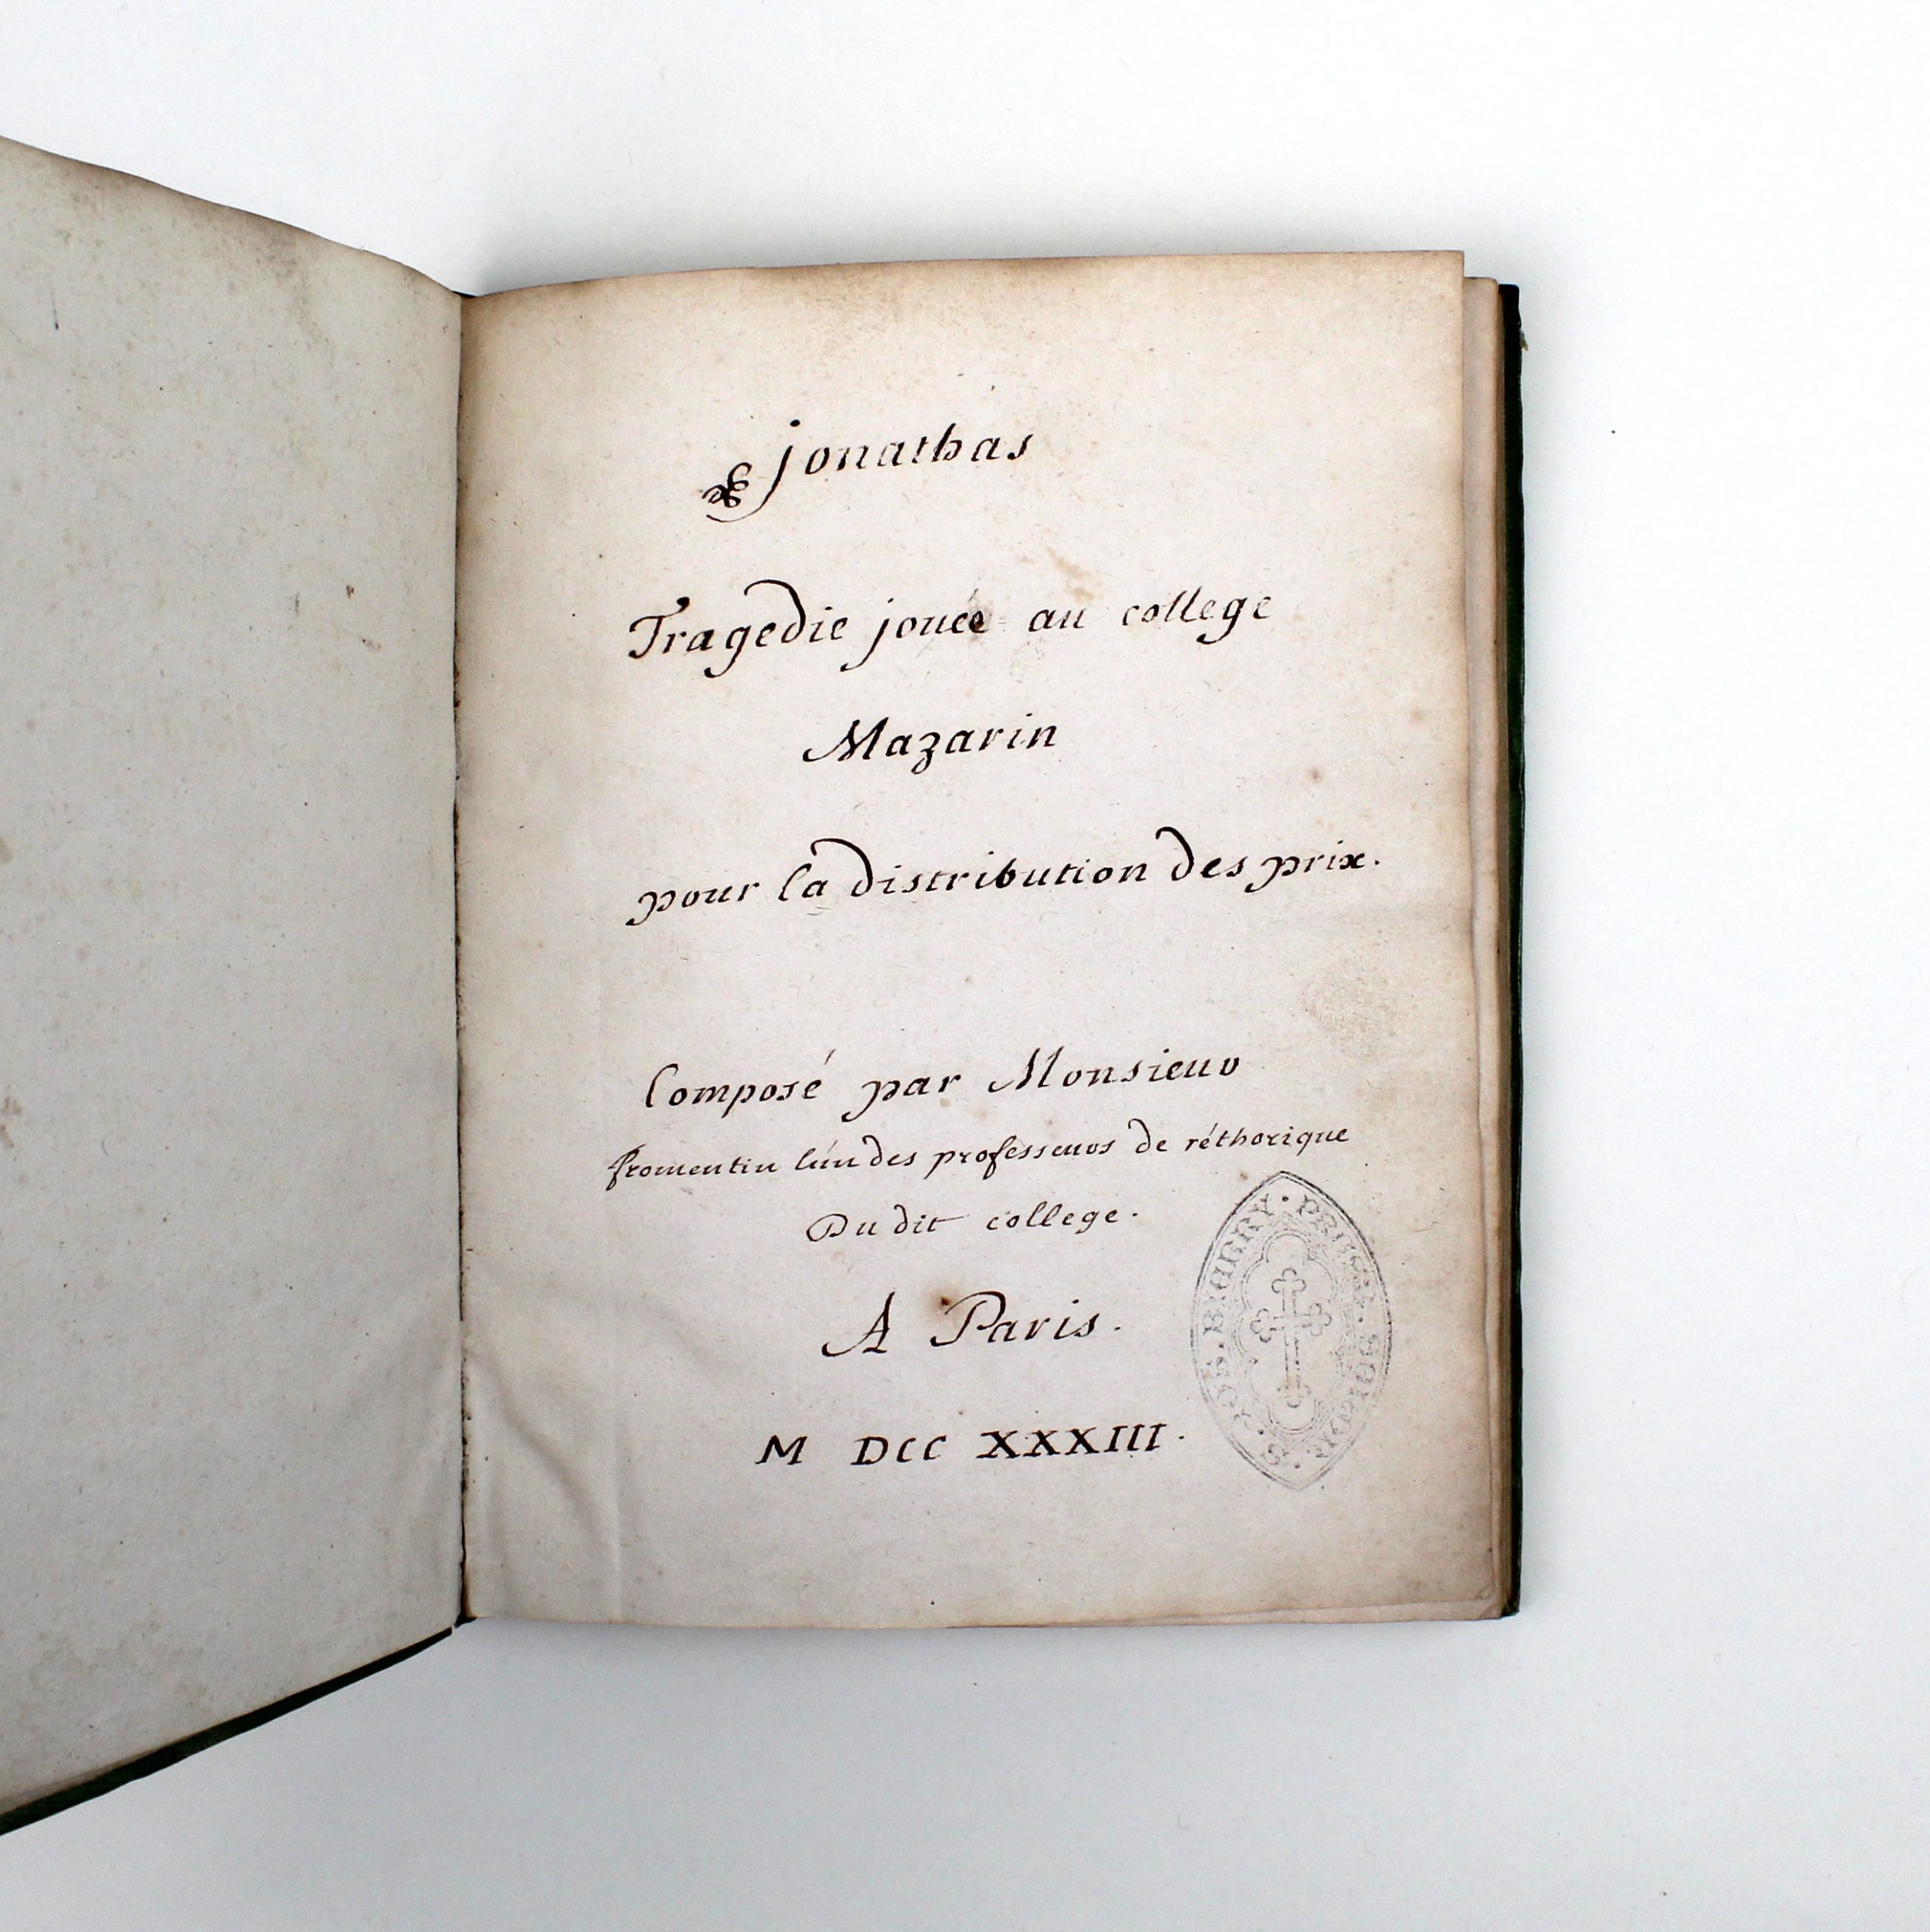 jonathas
Tragedie jouée au college
Mazarin
pour la distribution des prix.
Composé par Monsieur
fromentin l'un des professeurs de réthorique
Du dit college.
A Paris.
M DCC XXXIII.
BIARRY